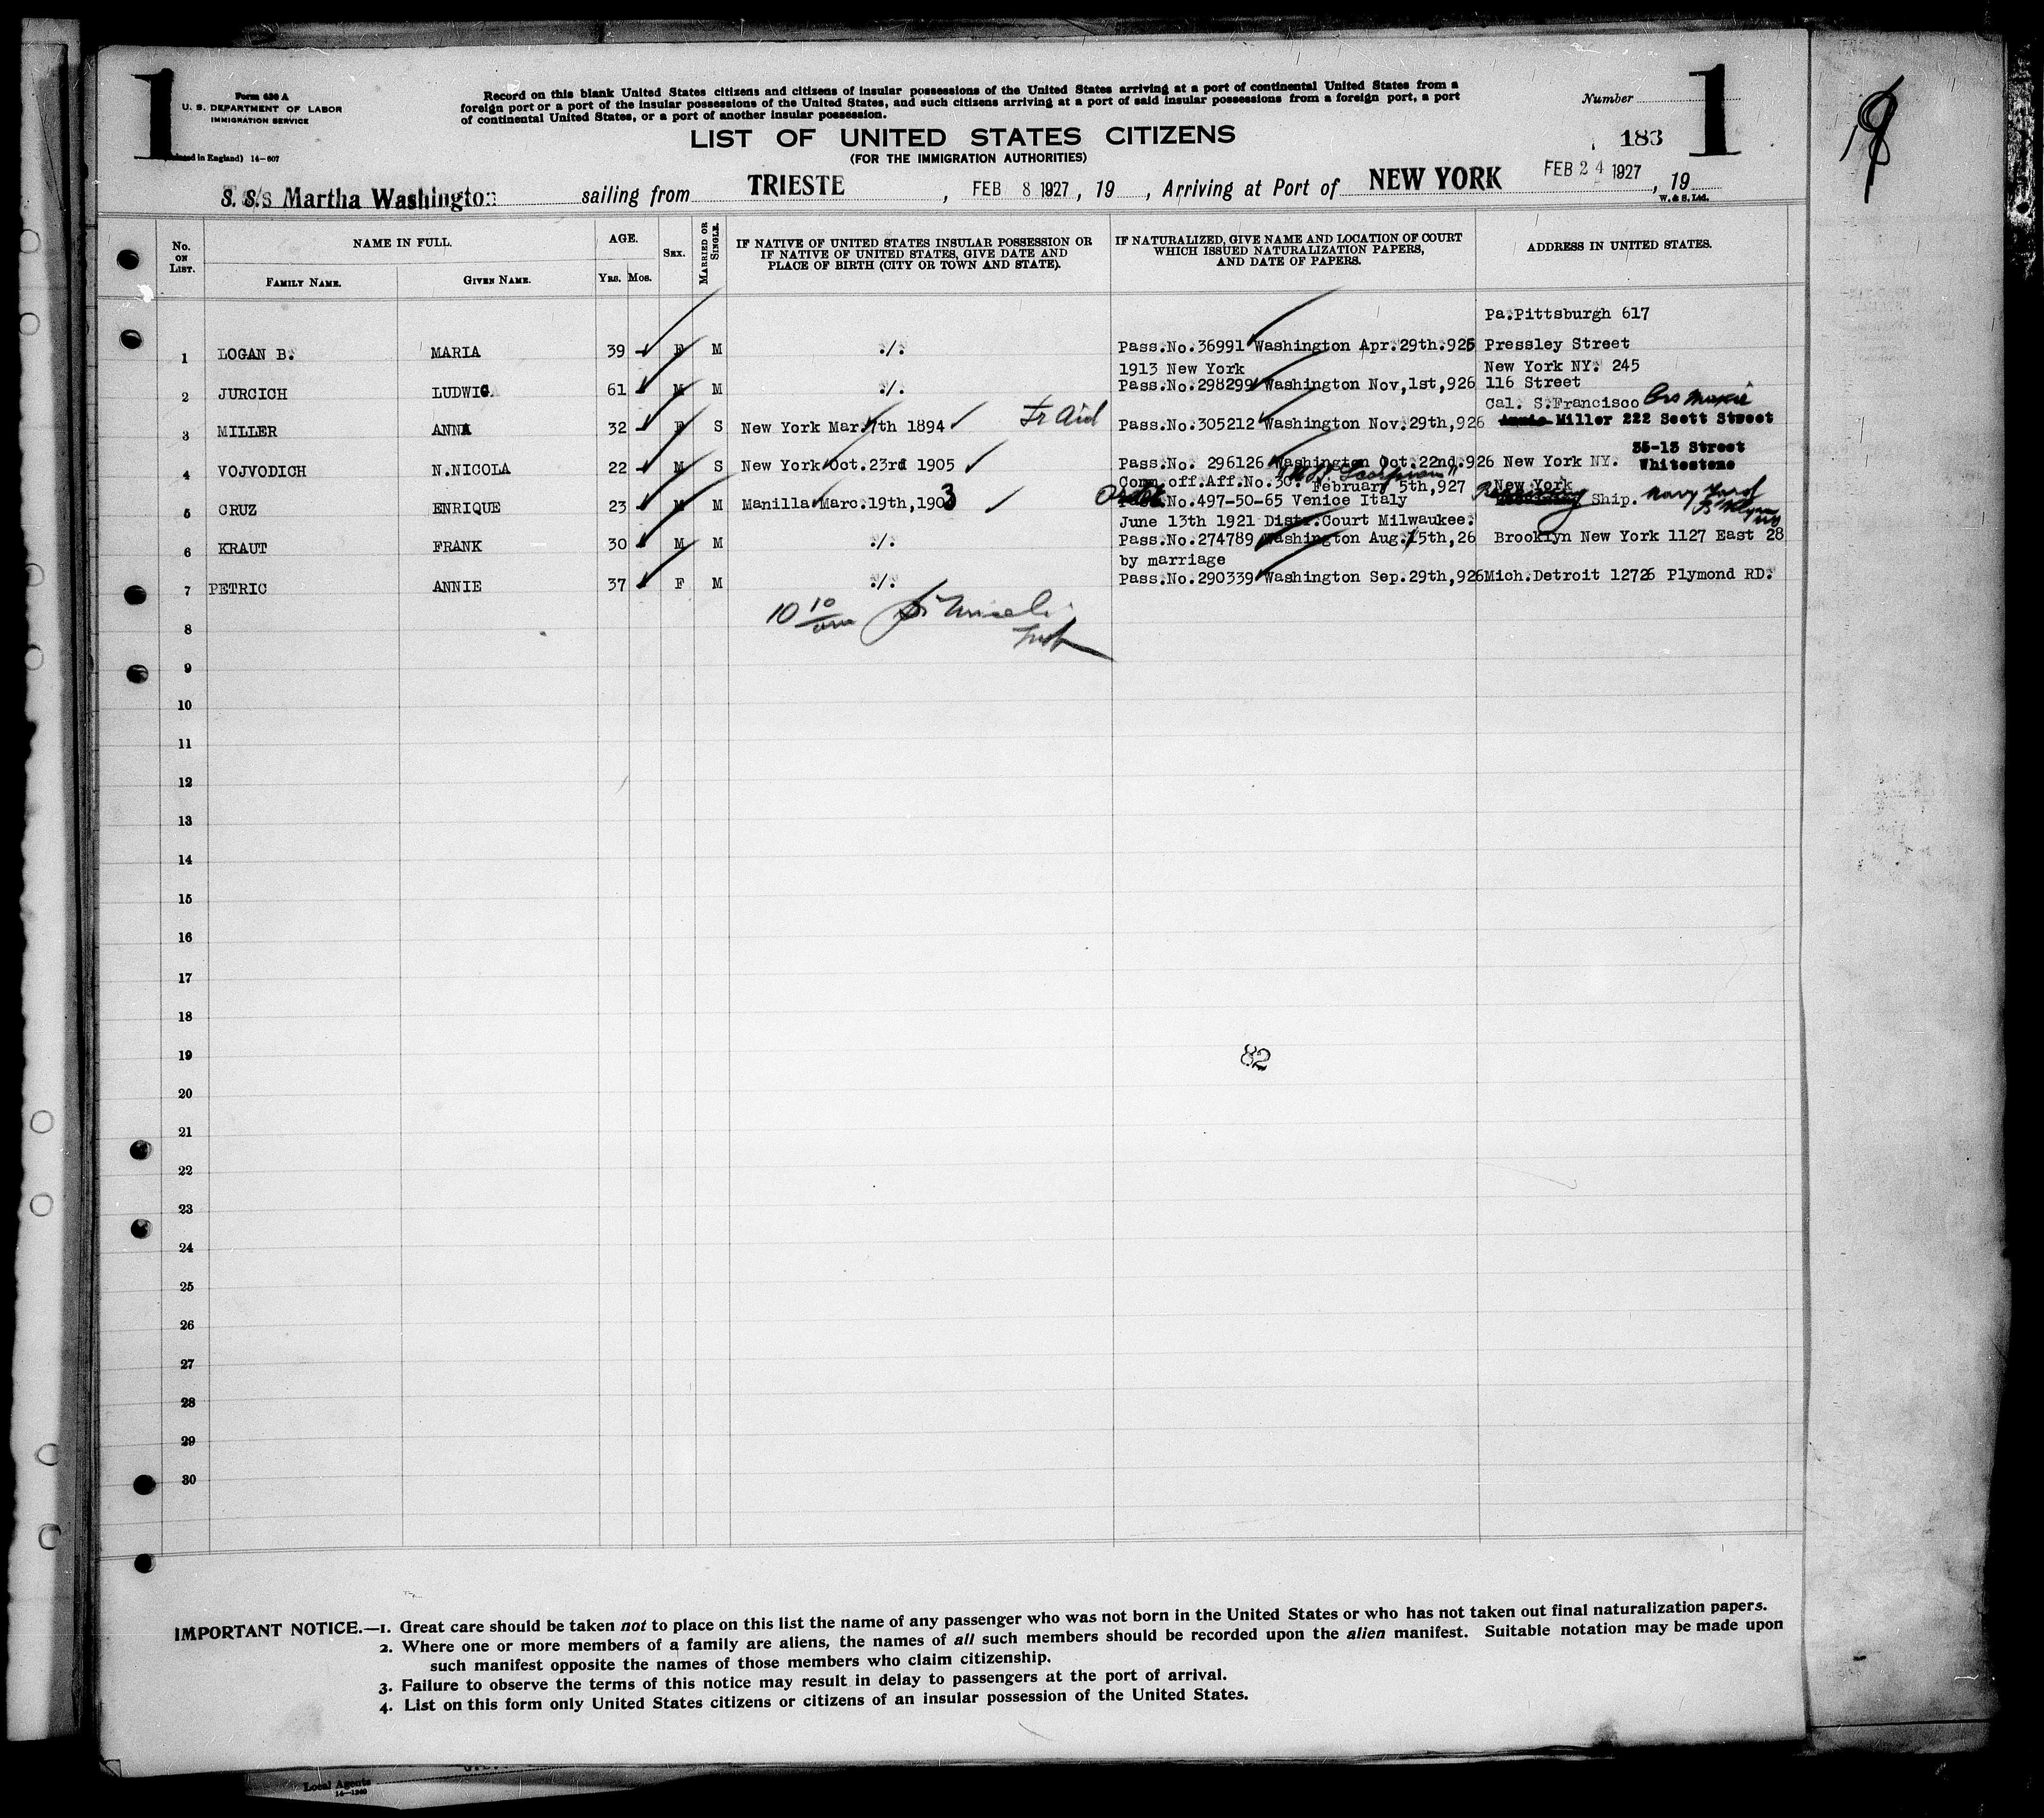 1
Form 630 A
U. S. DEPARTMENT OF LABOR
IMMIGRATION SERVICE
in England) 14-607
Record on this blank United States citizens and citizens of insular possessions of the United States arriving at a port of continental United States from a
foreign port or a port of the insular possessions of the United States, and such citizens arriving at a port of said insular possessions from a foreign port, a port
of continental United States, or a port of another insular possession.
LIST OF UNITED STATES CITIZENS
(FOR THE IMMIGRATION AUTHORITIES)
Number
183
1
S. S/s Martha Washington sailing from TRIESTE, FEB 8 1927, 19, Arriving at Port of NEW YORK FEB 24 1927, 19
W. & S. Ltd.
No. ON LIST.
NAME IN FULL.
FAMILY NAME.
GIVEN NAME.
AGE.
Yrs. Mos.
SEX.
MARRIED OR SINGLE.
IF NATIVE OF UNITED STATES INSULAR POSSESSION OR
IF NATIVE OF UNITED STATES, GIVE DATE AND
PLACE OF BIRTH (CITY OR TOWN AND STATE).
IF NATURALIZED, GIVE NAME AND LOCATION OF COURT
WHICH ISSUED NATURALIZATION PAPERS,
AND DATE OF PAPERS.
ADDRESS IN UNITED STATES.
Pa.Pittsburgh 617
1 LOGAN B. MARIA 39 F M ./. Pass.No.36991 Washington Apr.29th.925 Pressley Street
1913 New York New York NY. 245
2 JURCICH LUDWIG 61 M M ./. Pass.No.298299 Washington Nov,1st,926 116 Street
Cal. S.Francisco
3 MILLER ANNA 32 F S New York Mar.7th 1894 Fr Aid Pass.No.305212 Washington Nov.29th,926 Annie Miller 222 Scott Street
35-13 Street
4 VOJVODICH N.NICOLA 22 M S New York Oct.23rd 1905 Pass.No. 296126 Washington Oct.22nd.926 New York NY. Whitestone
Com.off.Aff.No.30. February 5th,927 New York
5 CRUZ ENRIQUE 23 M M Manilla Marc.19th,1903 No.497-50-65 Venice Italy Ship. Navy Yard
June 13th 1921 Distr.Court Milwaukee.
6 KRAUT FRANK 30 M M ./. Pass.No.274789 Washington Aug.15th,26 Brooklyn New York 1127 East 28
by marriage
7 PETRIC ANNIE 37 F M ./. Pass.No.290339 Washington Sep.29th,926 Mich.Detroit 12726 Plymond RD.
10 10
8
9
10
11
12
13
14
15
16
17
18
19
82
20
21
22
23
24
25
26
27
28
29
30
IMPORTANT NOTICE.—1. Great care should be taken not to place on this list the name of any passenger who was not born in the United States or who has not taken out final naturalization papers.
2. Where one or more members of a family are aliens, the names of all such members should be recorded upon the alien manifest. Suitable notation may be made upon
such manifest opposite the names of those members who claim citizenship.
3. Failure to observe the terms of this notice may result in delay to passengers at the port of arrival.
4. List on this form only United States citizens or citizens of an insular possession of the United States.
Local Agents